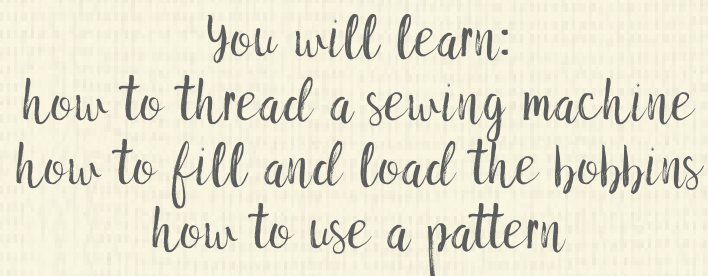 You will learn:
how to thread a sewing machine
how to fill and load the bobbins
how to use a pattern